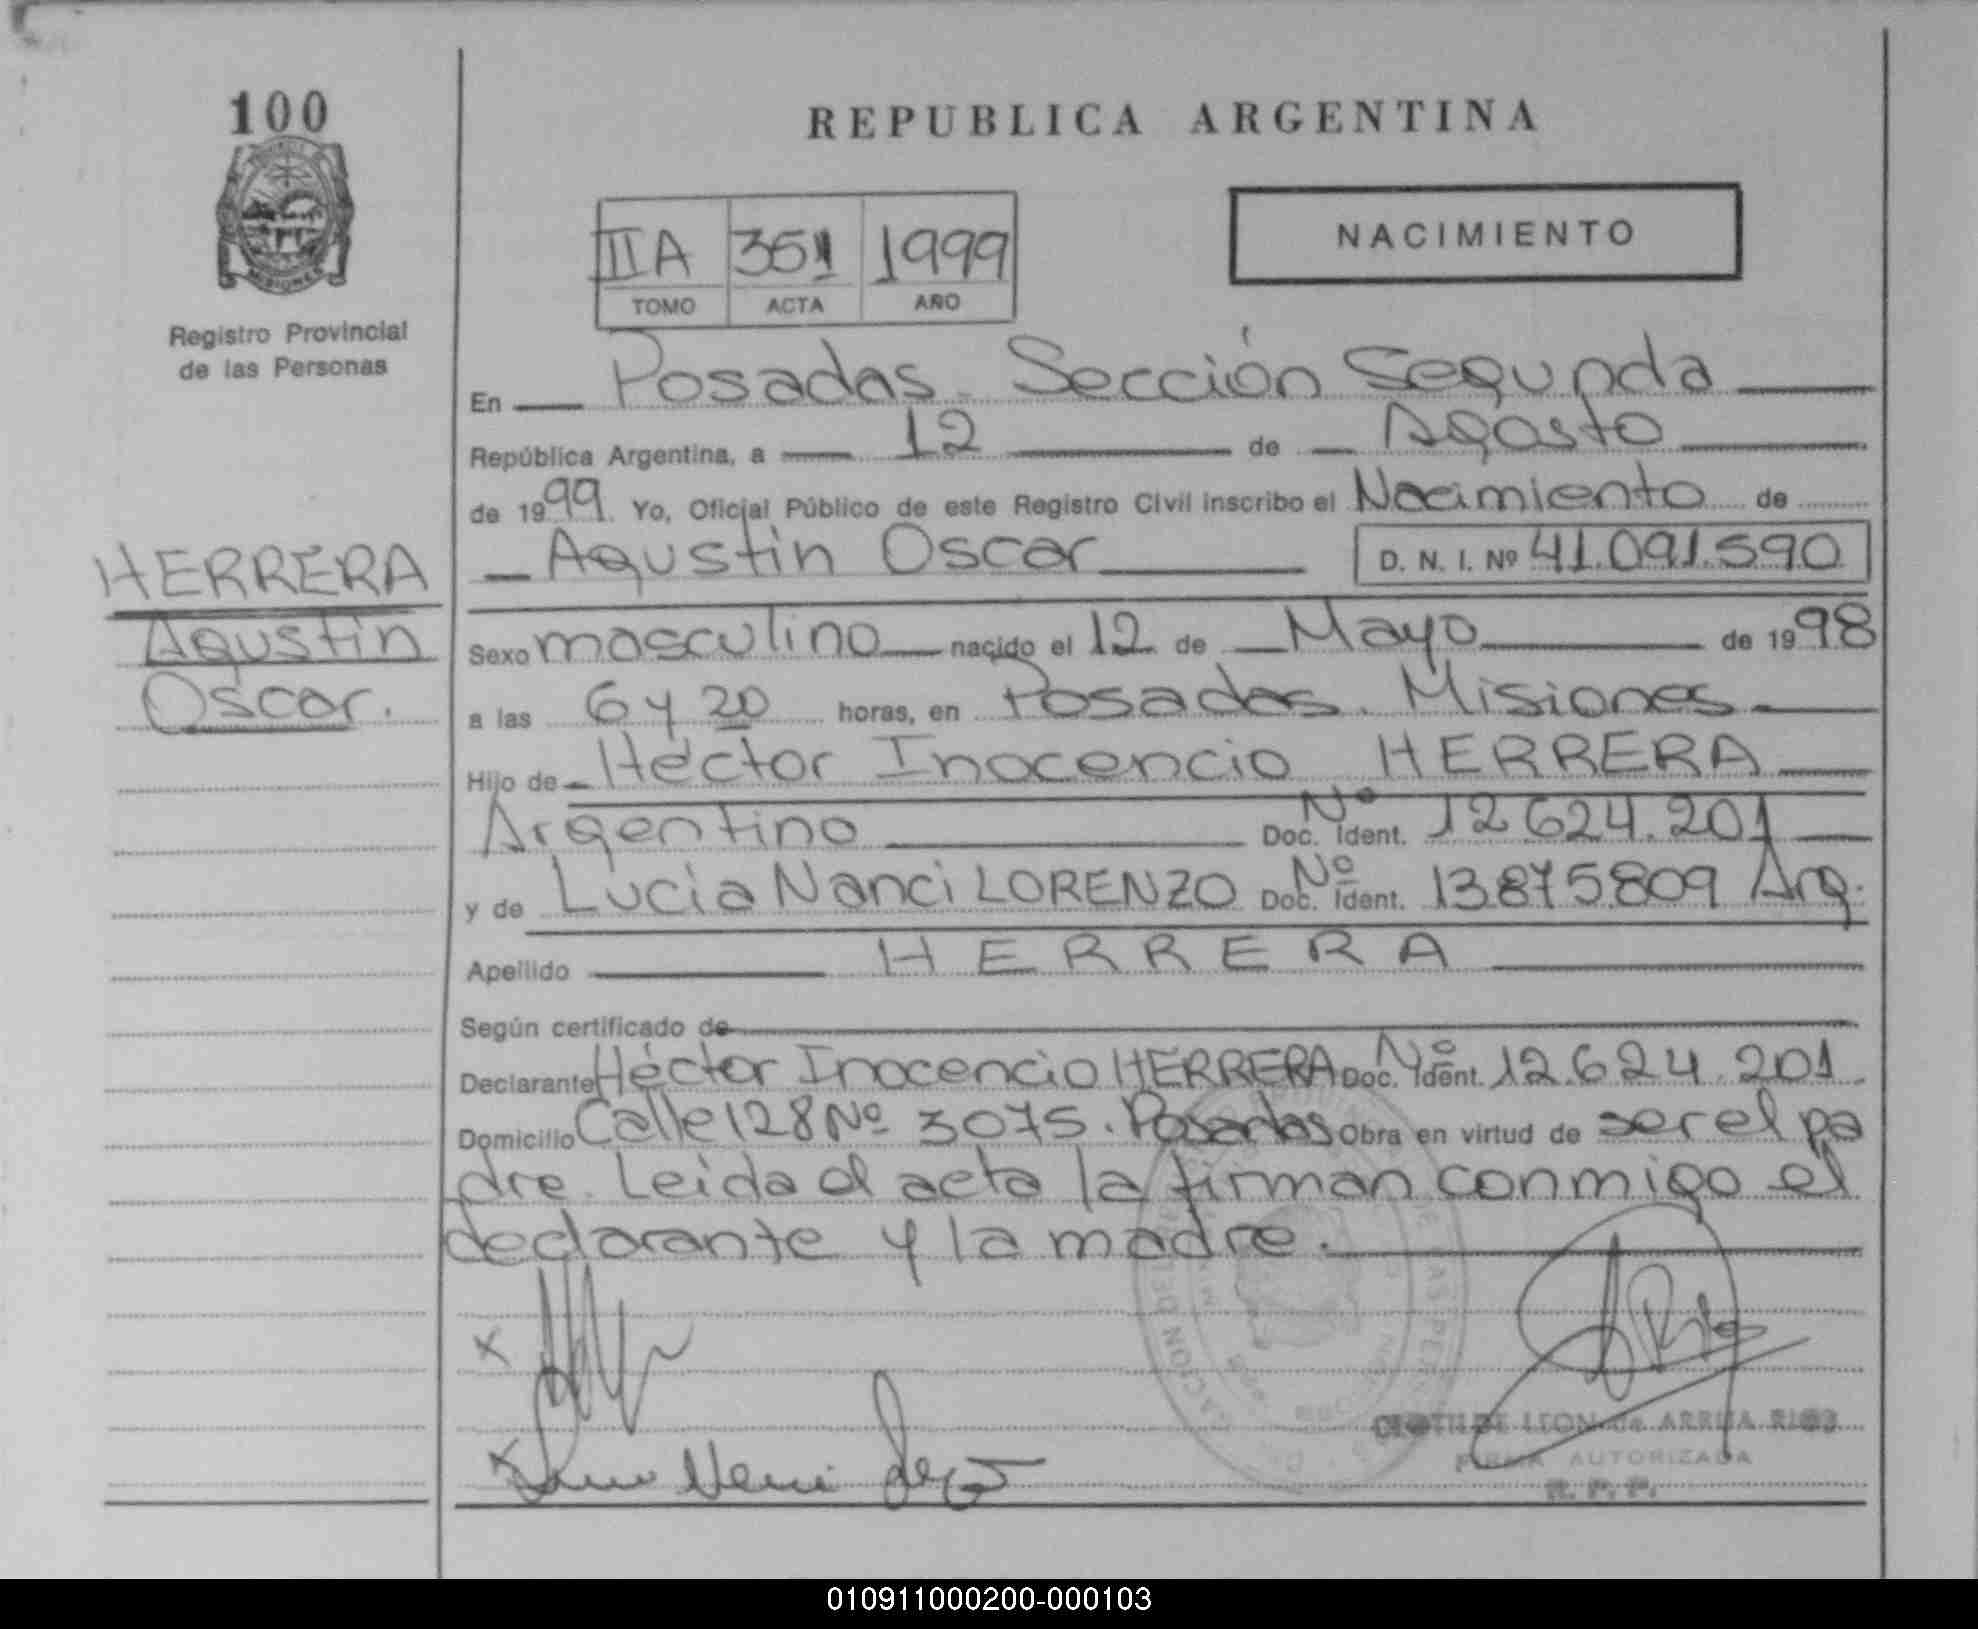 100
REPUBLICA ARGENTINA
NACIMIENTO
IIA 351 1999
TOMO ACTA AÑO
Registro Provincial
de las Personas
En Posadas. Sección Segunda
República Argentina, a 12 de Agosto
de 1999. Yo, Oficial Público de este Registro Civil inscribo el Nacimiento de
Agustin Oscar D. N. I. Nº 41.091.590
HERRERA
Agustin
Oscar.
Sexo masculino nacido el 12 de Mayo de 1998
a las 6 y 20 horas, en Posadas. Misiones
Hijo de Héctor Inocencio HERRERA
Argentino Doc. Ident. Nº 12.624.201
y de Lucia Nanci LORENZO Doc. Ident. Nº 13.875.809 Arg.
Apellido HERRERA
Según certificado de
Declarante Héctor Inocencio HERRERA Doc. Ident. Nº 12.624.201
Domicilio Calle 128 Nº 3075. Posadas Obra en virtud de ser el pa
dre. Leida el acta la firman conmigo el
declarante y la madre.
CLOTILDE LEON de ARRUA RIOS
FIRMA AUTORIZADA
R. P. P.
010911000200-000103